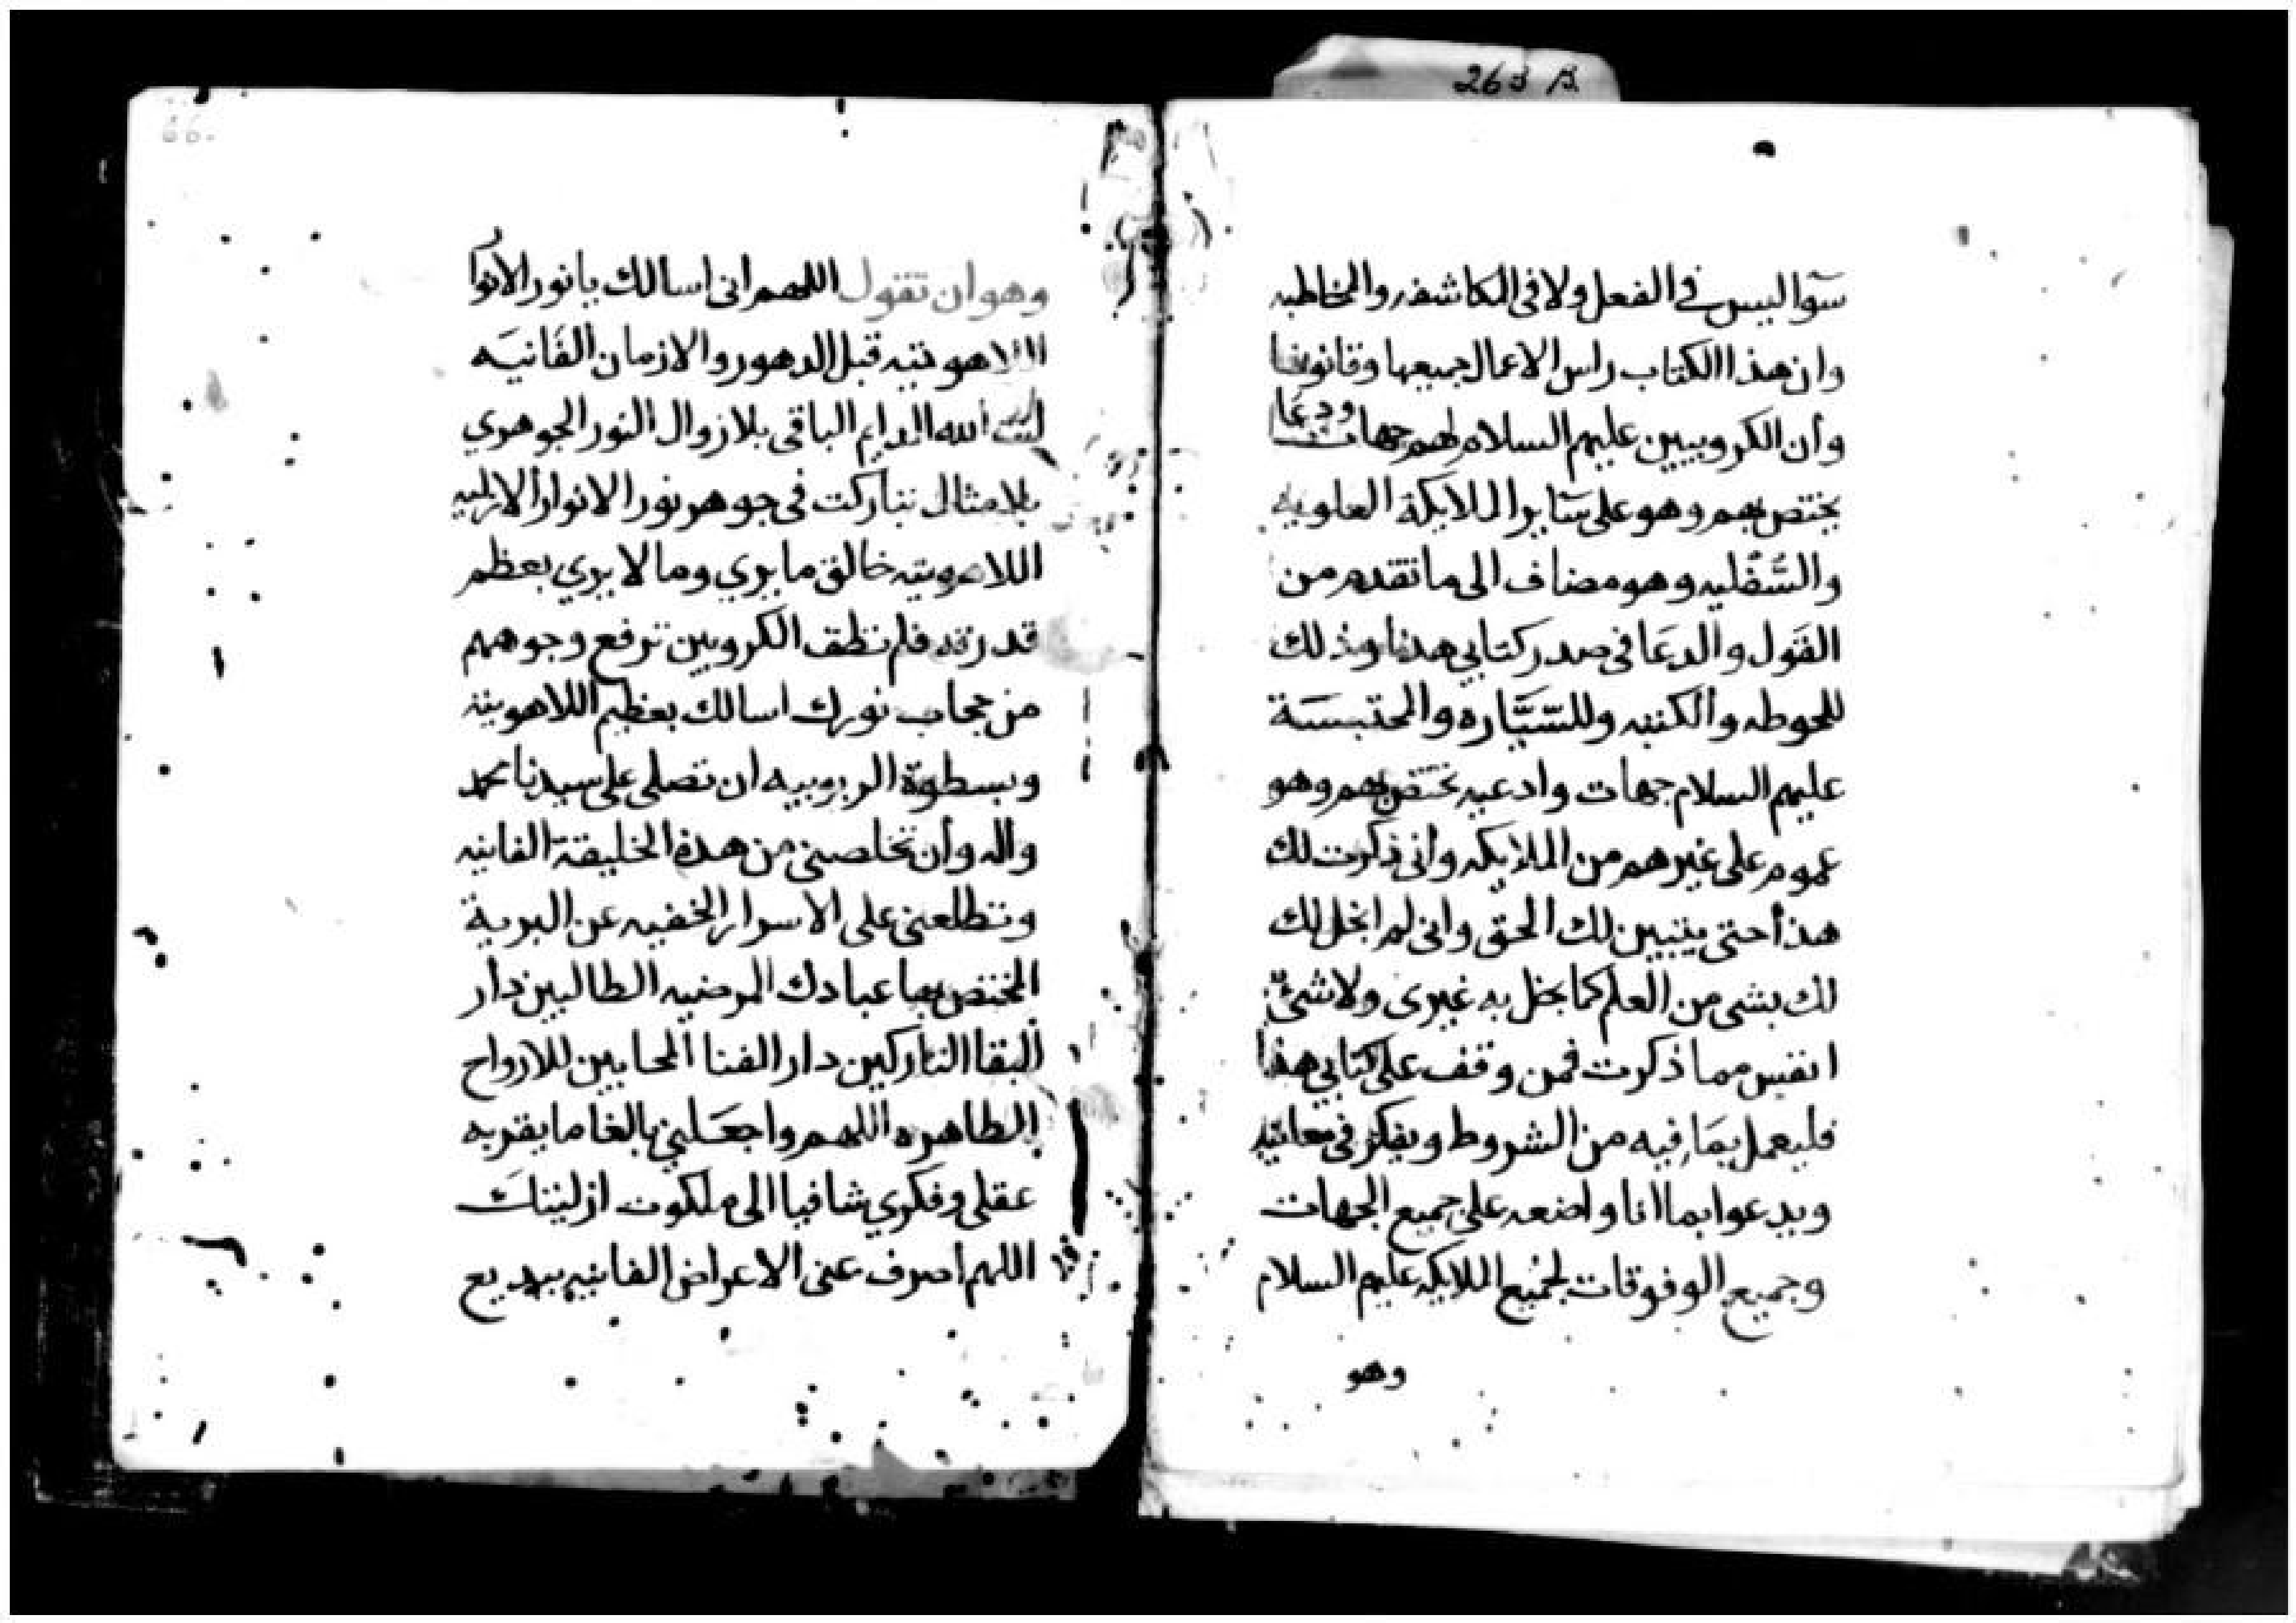 263 B
سوا ليس في الفعل ولا في المكاشفه والمخاطبه
وان هذا الكتاب راس الاعمال جميعها وقانونها
وأن الكروبيين عليهم السلام لهم جهات ودعا
يختص بهم وهو على ساير الملايكة العلويه
والسُّفليه وهو مضاف الى ما تقدم من
القَول والدعَا في صدر كتابي هذا وذلك
للحوطه وألكننه وللسَّيَّاره والمحتبسَة
عليهم السلام جهات وادعيه تختص بهم وهو
عموم على غيرهم من الملايكه وأني ذكرت لك
هذأ حتى يتبين لك الحق واني لم ابخل لك
لك بشى من العلم كما بخل به غيرى ولا شئ
انفس مما ذكرت فمن وقف على كتابي هذا
فليعمل بمَا فيه من الشروط ويفكر في معانيه
ويدعوا بما انا واضعه على جميع الجهات
وجميع الوفوقات لجميع الملايكه عليهم السلام
وهو
66.
وهو ان تقول اللهم اني اسالك يا نور الانوا
اللاهوتيه قبل الدهور والازمان الفَانيَه
انت الله الدايم الباقي بلا زوال النور الجوهري
بلا مثال تباركت في جوهر نور الانوار ألازليه
اللاهوتيه خالق ما يري وما لا يري بعظم
قدرته فلم تطق الكروبين ترفع وجوههم
من حجاب نورك اسالك بعظيم اللاهوتيه
وبسطوة الربوبيه ان تصلي على سيدنا محمد
واله وأن تخلصني من هذة الخليقة الفانيه
وتطلعني على الاسرار الخفيه عن البرية
المختص بها عبادك المرضيه الطالبين دار
ألبقا التاركين دار الفنا المحابين للارواح
الطاهره اللهم واجعَلني بالغا ما يقربه
عقلي وفكري شافيا الى ملكوت ازليتك
اللهم اصرف عنى الاعراض الفانيه ببديع